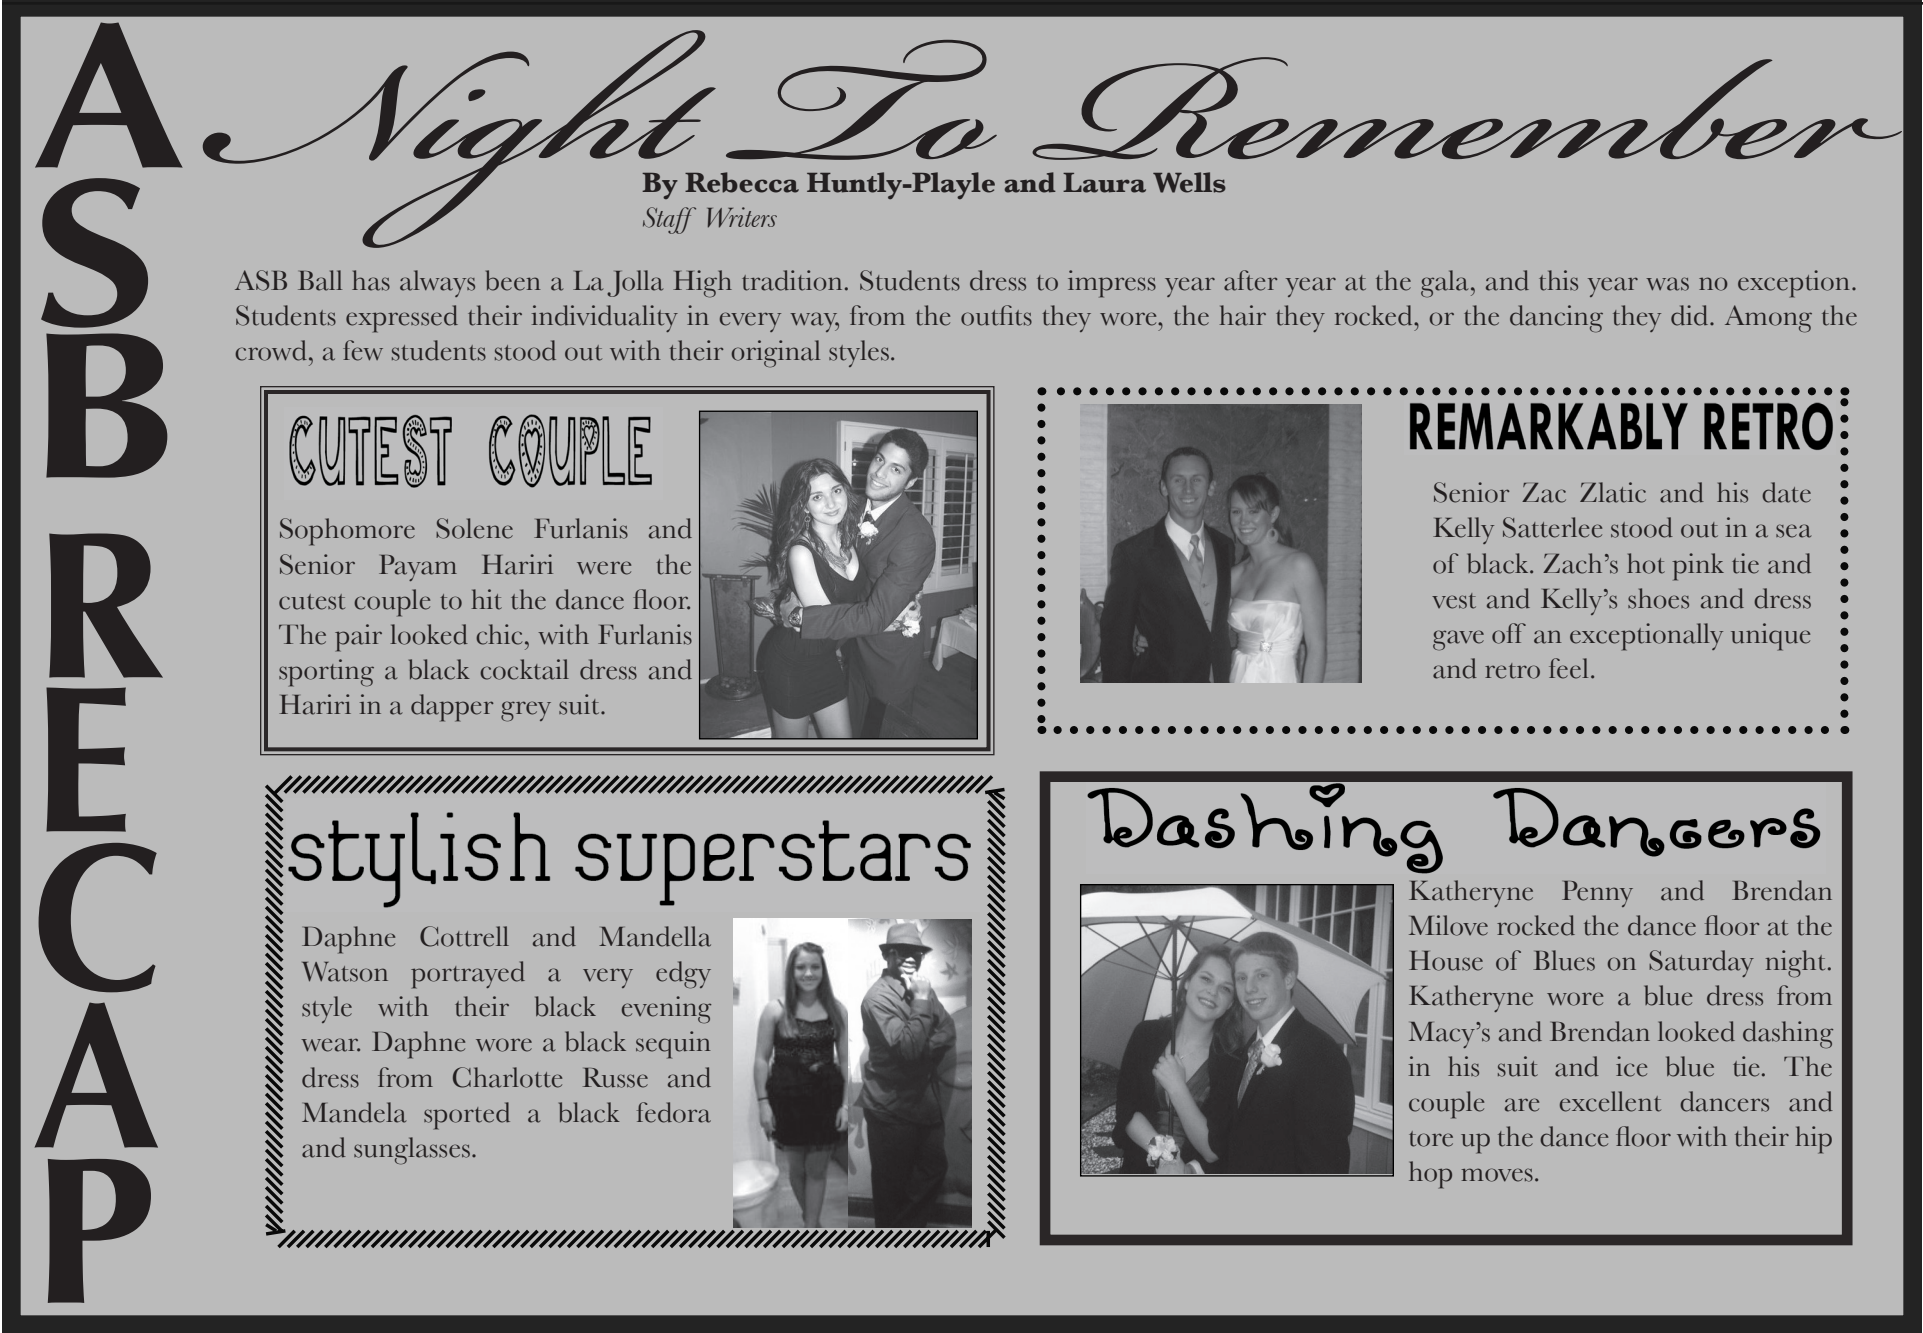 ASB RECAP
A Night To Remember
By Rebecca Huntly-Playle and Laura Wells
Staff Writers
ASB Ball has always been a La Jolla High tradition. Students dress to impress year after year at the gala, and this year was no exception.
Students expressed their individuality in every way, from the outfits they wore, the hair they rocked, or the dancing they did. Among the
crowd, a few students stood out with their original styles.
CUTEST COUPLE
Sophomore Solene Furlanis and
Senior Payam Hariri were the
cutest couple to hit the dance floor.
The pair looked chic, with Furlanis
sporting a black cocktail dress and
Hariri in a dapper grey suit.
REMARKABLY RETRO
Senior Zac Zlatic and his date
Kelly Satterlee stood out in a sea
of black. Zach's hot pink tie and
vest and Kelly's shoes and dress
gave off an exceptionally unique
and retro feel.
stylish superstars
Daphne Cottrell and Mandella
Watson portrayed a very edgy
style with their black evening
wear. Daphne wore a black sequin
dress from Charlotte Russe and
Mandela sported a black fedora
and sunglasses.
Dashing Dancers
Katheryne Penny and Brendan
Milove rocked the dance floor at the
House of Blues on Saturday night.
Katheryne wore a blue dress from
Macy's and Brendan looked dashing
in his suit and ice blue tie. The
couple are excellent dancers and
tore up the dance floor with their hip
hop moves.